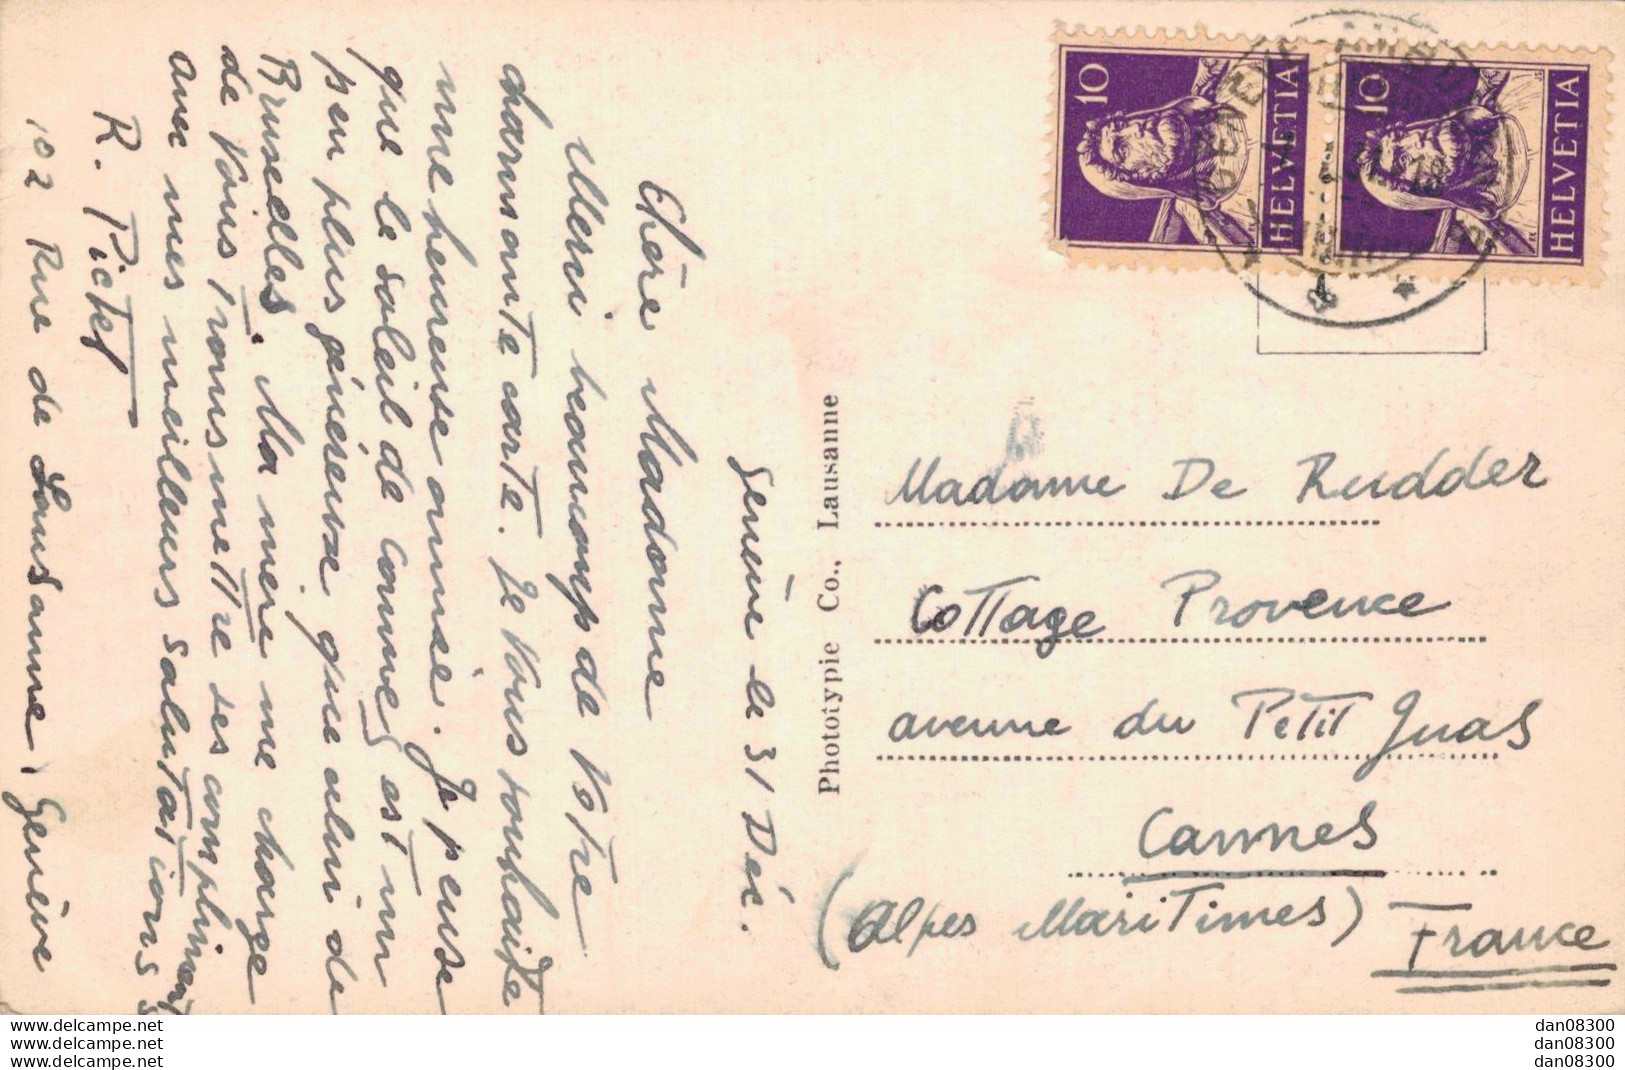 Genève le 31 Déc.
Chère Madame
Merci beaucoup de Votre
charmante carte. Je Vous souhaite
une heureuse année. Je pense
que le soleil de Cannes est un
peu plus généreux que celui de
Bruxelles. Ma mère me charge
de Vous transmettre ses compliments
avec mes meilleurs salutations
R. Pictet
102 Rue de Lausanne, Genève
Phototypie Co., Lausanne
10
HELVETIA
10
HELVETIA
Madame De Rudder
Cottage Provence
avenue du Petit Juas
Cannes
(Alpes Maritimes) France
www.delcampe.net
www.delcampe.net
www.delcampe.net
dan08300
dan08300
dan08300